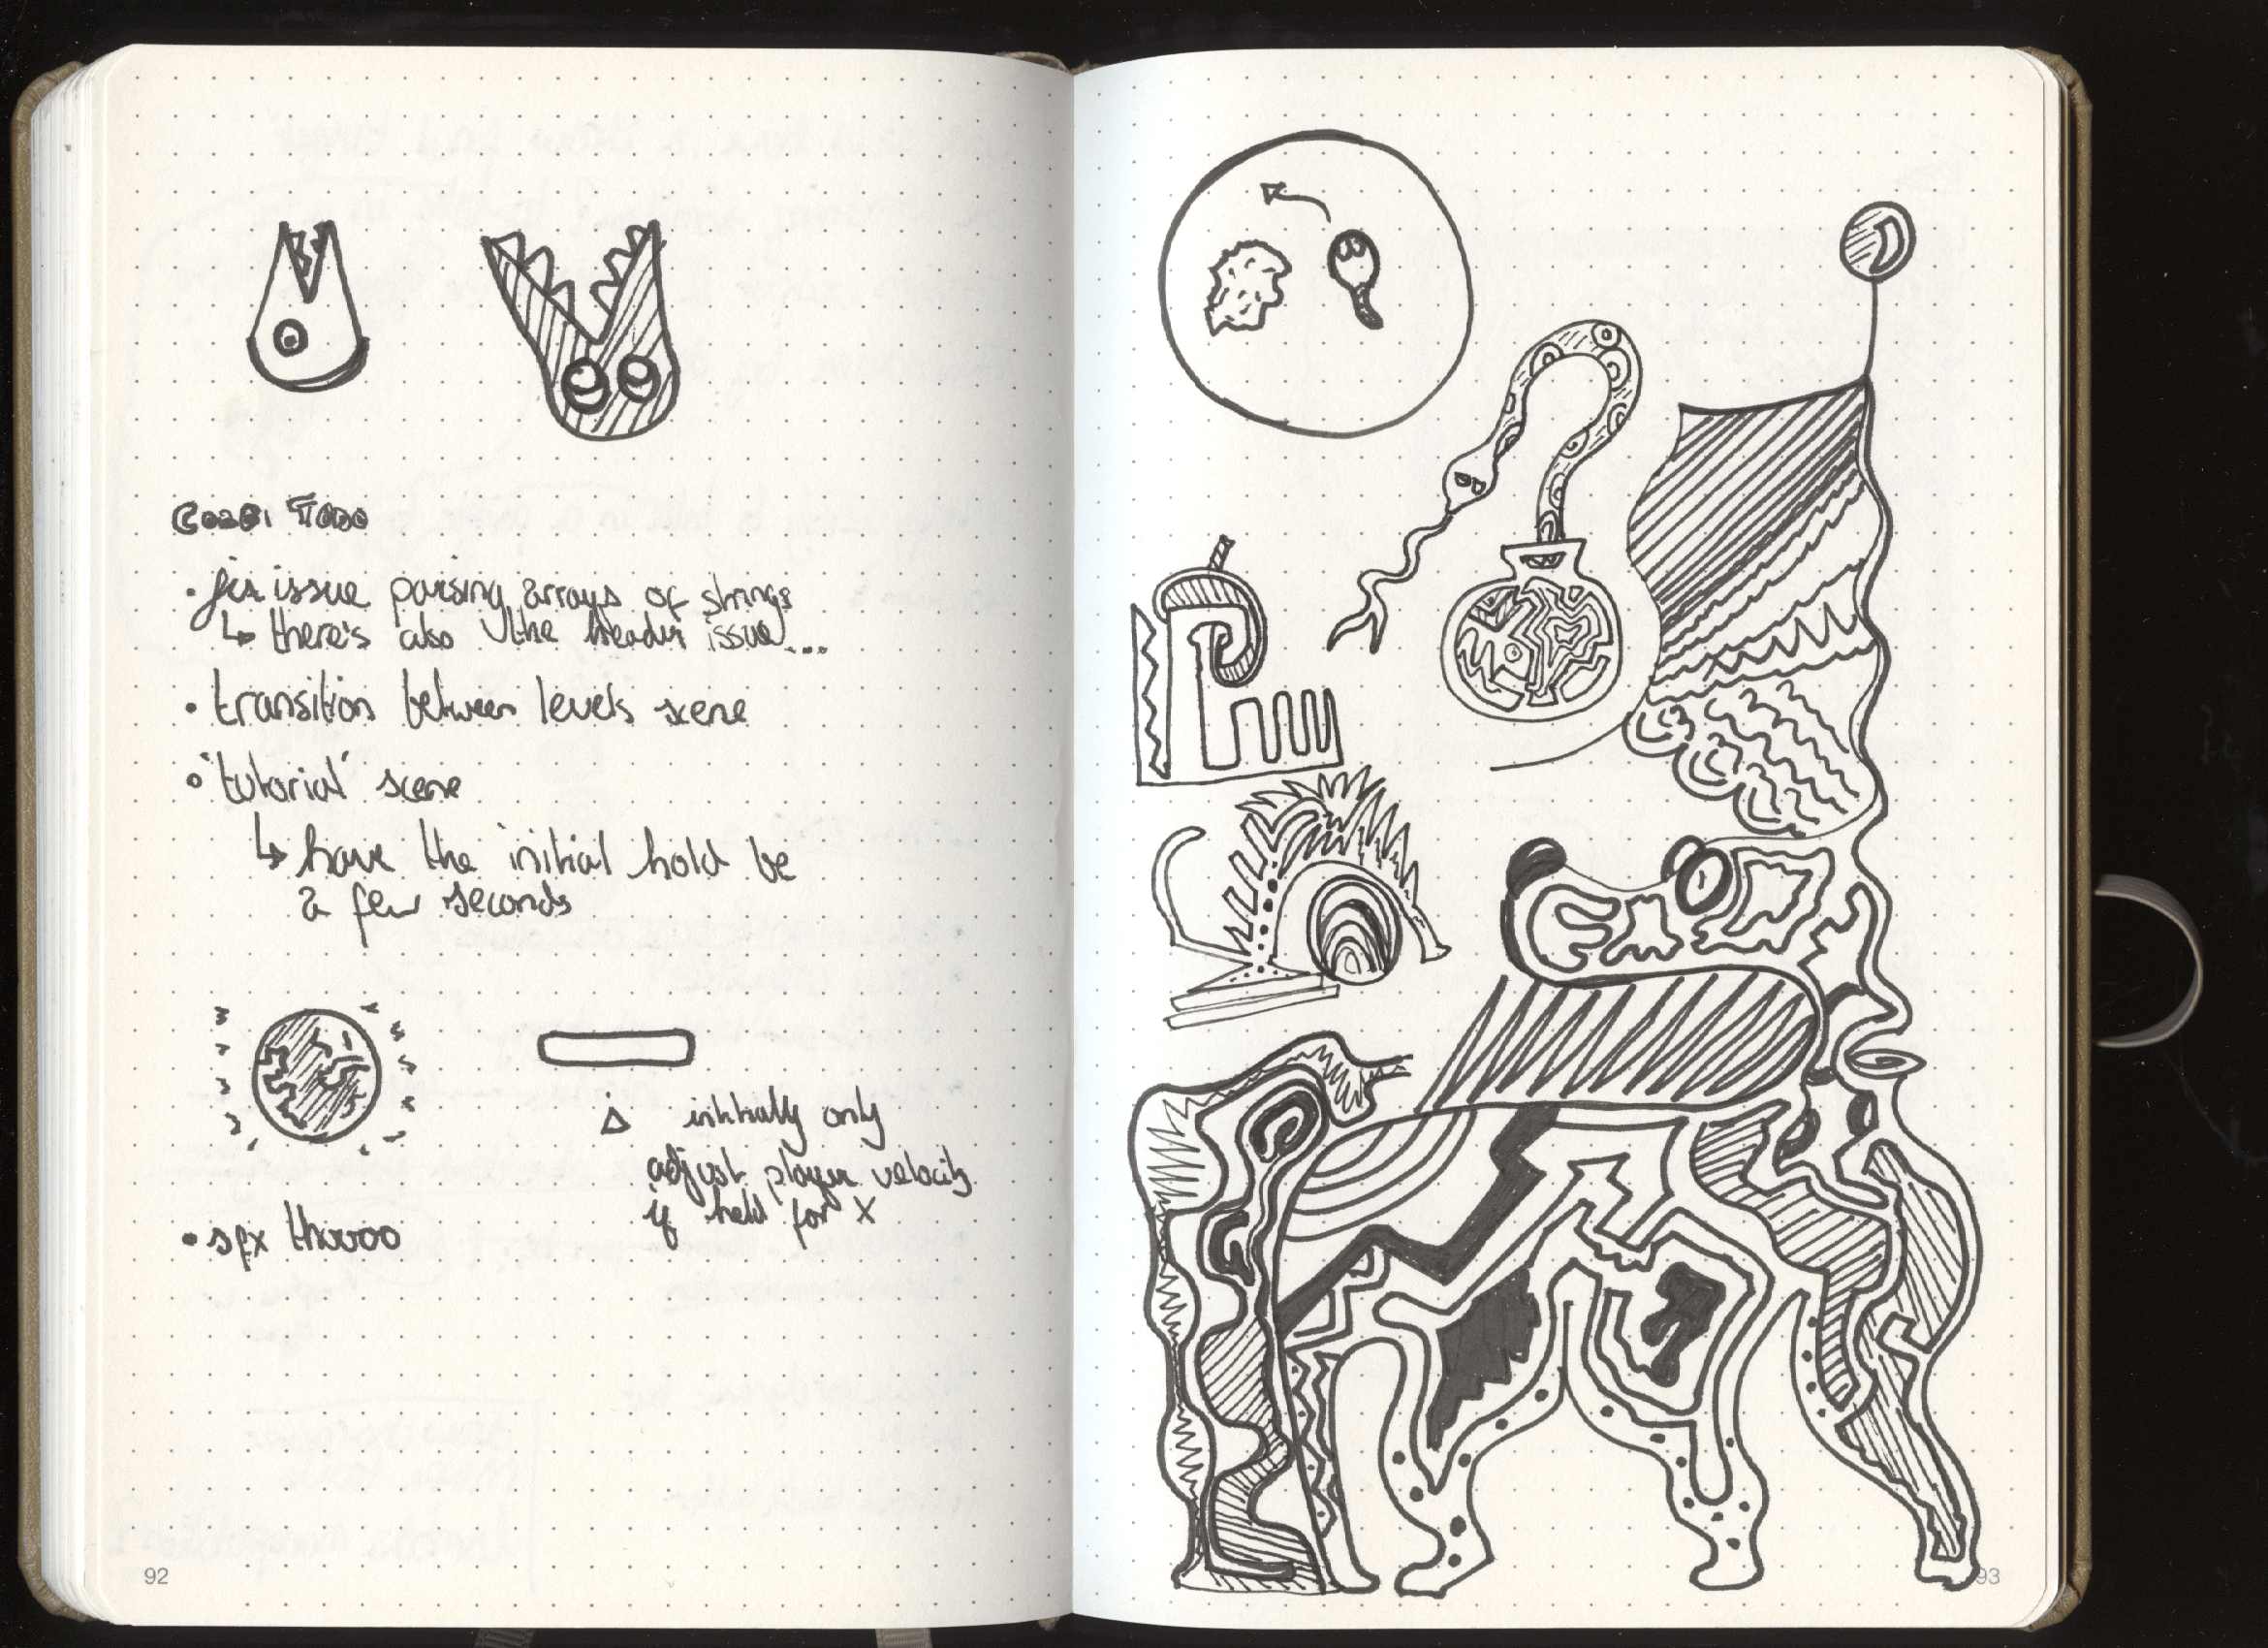 Todo
• fix issue parsing arrays of strings
↳ there's also the header issue...
• transition between levels scene
• 'tutorial' scene
↳ have the initial hold be
a few seconds
initially only
adjust player velocity
if held for X
• sfx
92
93